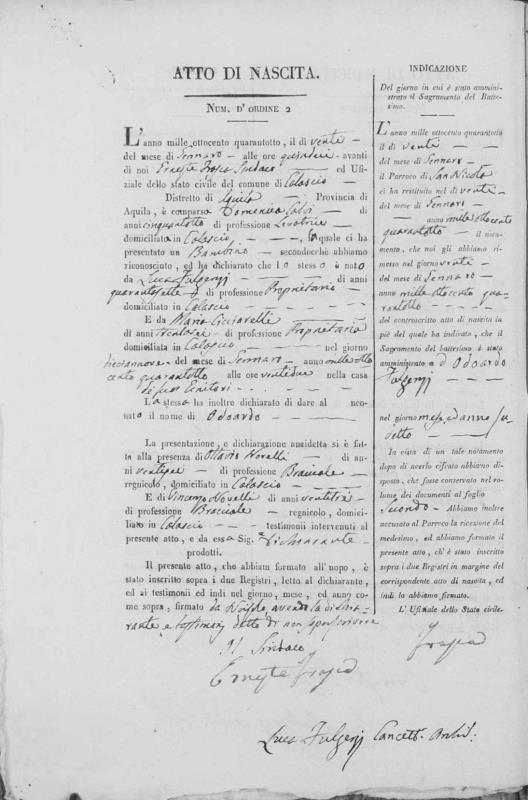 ATTO DI NASCITA.
NUM. D'ORDINE 2
L'anno mille ottocento quarantotto, il dì venti
del mese di Gennaro alle ore quindici avanti
di noi Ernesto Sindaco ed Ufi-
ziale dello stato civile del comune di Calascio
Distretto di Aquila Provincia di
Aquila, è comparsa Domenica di
anni cinquantotto di professione Levatrice
domiciliata in Calascio la quale ci ha
presentato un Bambino secondocchè abbiamo
riconosciuto, ed ha dichiarato che lo stesso è nato
da Luca Fulgenzj di anni
quarantasette di professione Proprietario
domiciliato in Calascio
E da Maria Cicciarelli
di anni trentasei di professione Proprietaria
domiciliata in Calascio nel giorno
diecinnove del mese di Gennaro anno mille otto
cento quarantotto alle ore ventidue nella casa
di suoi Genitori
La stessa ha inoltre dichiarato di dare al neo-
nato il nome di Odoardo
La presentazione, e dichiarazione anzidetta si è fat-
ta alla presenza di Ottavio Novelli di an-
ni ventisei di professione Bracciale
regnicolo, domiciliato in Calascio
E di Vincenzo Novelli di anni ventitrè
di professione Bracciale regnicolo, domici-
liato in Calascio testimonii intervenuti al
presente atto, e da essa Sig.a Dichiarante
prodotti.
Il presente atto, che abbiam formato all'uopo, è
stato inscritto sopra i due Registri, letto al dichiarante,
ed ai testimonii ed indi nel giorno, mese, ed anno co-
me sopra, firmato da Noi, avendo la dichia-
rante, e testimonj detto di non saper scrivere
Il Sindaco
Ernesto
Luca Fulgenzj Cancell. Archiv.
INDICAZIONE
Del giorno in cui è stato ammini-
strato il Sagramento del Batte-
simo.
L'anno mille ottocento quarantotto
il dì venti
del mese di Gennaro
il Parroco di San Nicola
ci ha restituito nel dì venti
del mese di Gennaro
anno mille ottocento
quarantotto il noti-
mento, che noi gli abbiamo ri-
messo nel giorno venti
del mese di Gennaro
anno mille ottocento qua-
rantotto
del controscritto atto di nascita in
piè del quale ha indicato, che il
Sagramento del battesimo è stato
amministrato a d Odoardo
Fulgenzj
nel giorno mese, ed anno su
detto
In vista di un tale notamento
dopo di averlo cifrato abbiamo di-
sposto, che fusse conservato nel vo-
lume dei documenti al foglio
Secondo Abbiamo inoltre
accusato al Parroco la ricezione del
medesimo, ed abbiamo formato il
presente atto, ch'è stato inscritto
sopra i due Registri in margine del
corrispondente atto di nascita, ed
indi lo abbiamo firmato.
L' Ufiziale dello Stato civile.